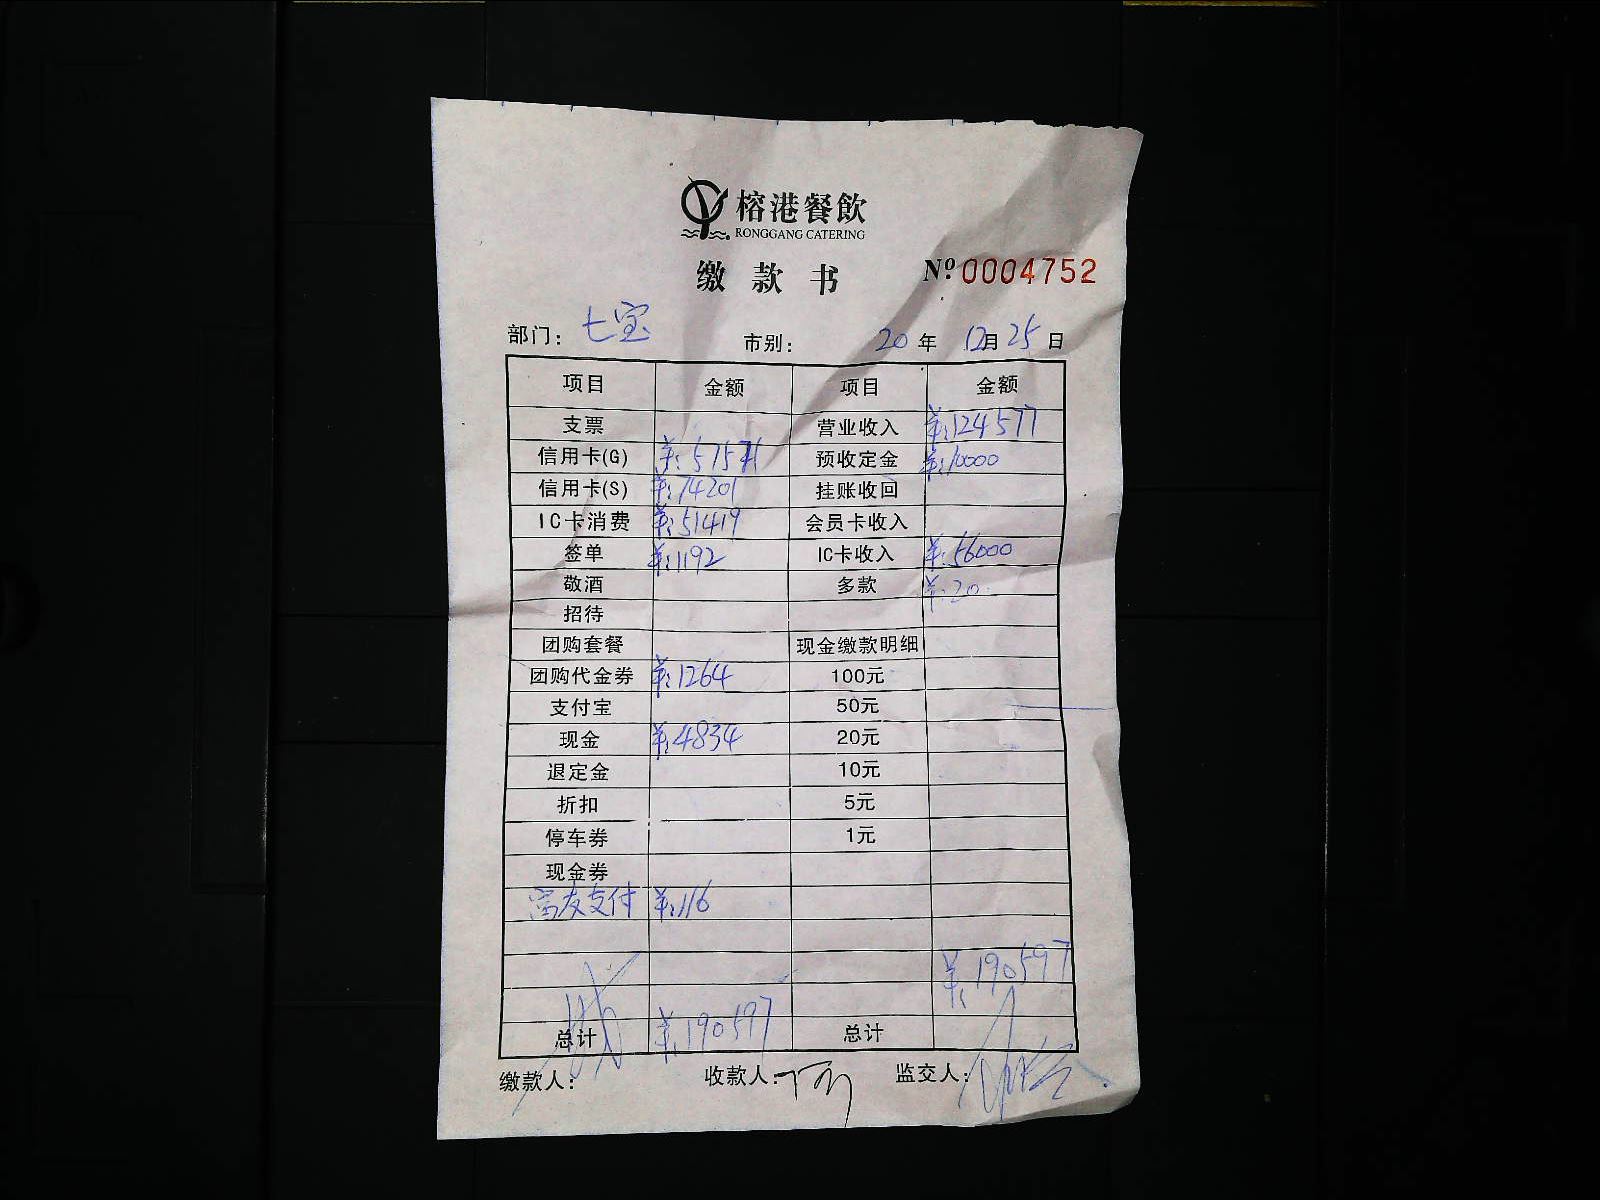 榕港餐飲
RONGGANG CATERING
缴款书 Nº 0004752
部门: 七宝 市别: 20年 12月 25日
项目 金额 项目 金额
支票 营业收入 ¥:124577
信用卡(G) ¥:57571 预收定金 ¥:10000
信用卡(S) ¥:74201 挂账收回
IC卡消费 ¥:51419 会员卡收入
签单 ¥:1192 IC卡收入 ¥:56000
敬酒 多款 ¥:20.
招待
团购套餐 现金缴款明细
团购代金券 ¥:1264 100元
支付宝 50元
现金 ¥:4834 20元
退定金 10元
折扣 5元
停车券 1元
现金券
富友支付 ¥:116
¥:190597
总计 ¥:190597 总计
缴款人: 收款人: 监交人: